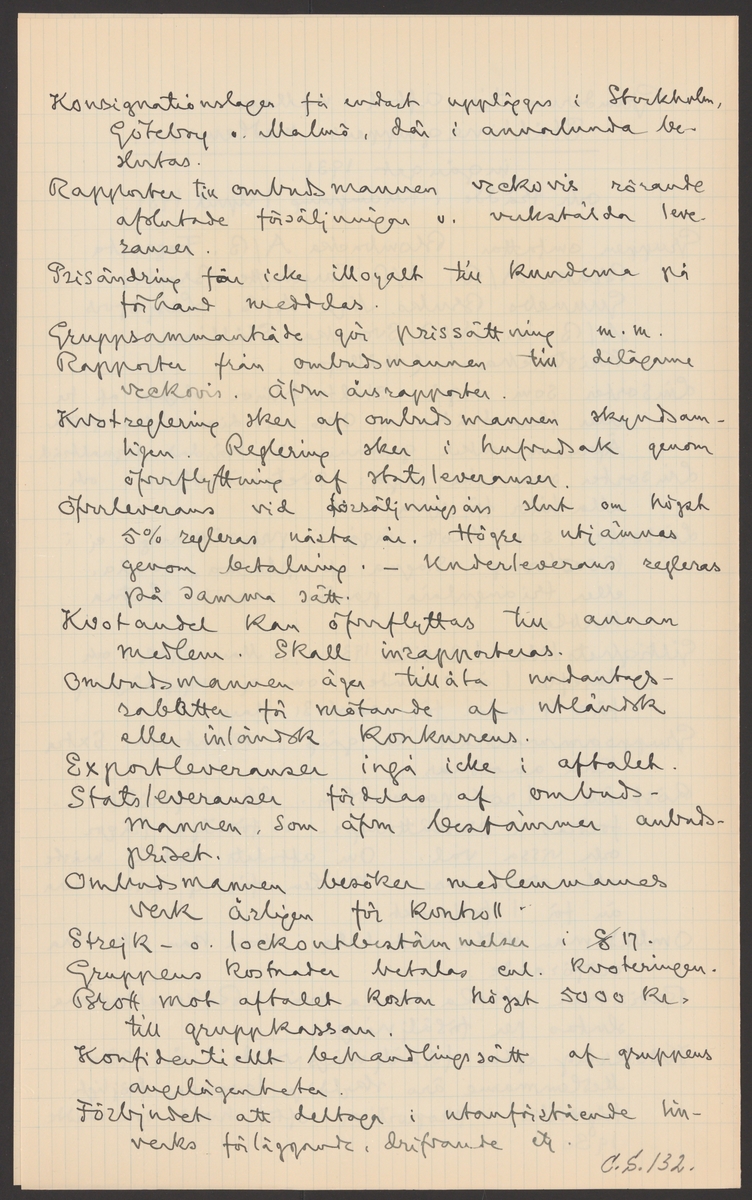 Konsignationslager får endast uppläggas i Stockholm,
Göteborg o. Malmö, där i annorlunda be-
slutas.
Rapporter till ombudsmannen veckovis rörande
afslutade försäljningar o. verkstälda leve-
ranser.
Prisändring får icke illoyalt till kunderna på
förhand meddelas.
Gruppsammanträde gör prissättning m.m.
Rapporter från ombudsmannen till delägarne
veckovis. Äfven årsrapporter.
Kvotreglering sker af ombudsmannen skyndsam-
ligen. Reglering sker i hufvudsak genom
öfverflyttning af statsleveranser.
Öfverleverans vid försäljningsårs slut om högst
5% regleras nästa år. Högre utjämnas
genom betalning. - Underleverans regleras
på samma sätt.
Kvotandel kan öfverflyttas till annan
medlem. Skall inrapporteras.
Ombudsmannen äger tillåta undantags-
rabatter för mötande af utländsk
eller inländsk konkurrens.
Exportleveranser ingå icke i aftalet.
Statsleveranser fördelas af ombuds-
mannen, som äfven bestämmer anbuds-
priset.
Ombudsmannen besöker medlemmarnes
verk årligen för kontroll.
Strejk- o. lockoutbestämmelser i § 17.
Gruppens kostnader betalas enl. kvoteringen.
Brott mot aftalet kostar högst 5000 Kr.
till gruppkassan.
Konfidentiellt behandlingssätt af gruppens
angelägenheter.
Förbjudet att deltaga i utanförstående lin-
verks förläggande, drifvande etc.
C.S.132.